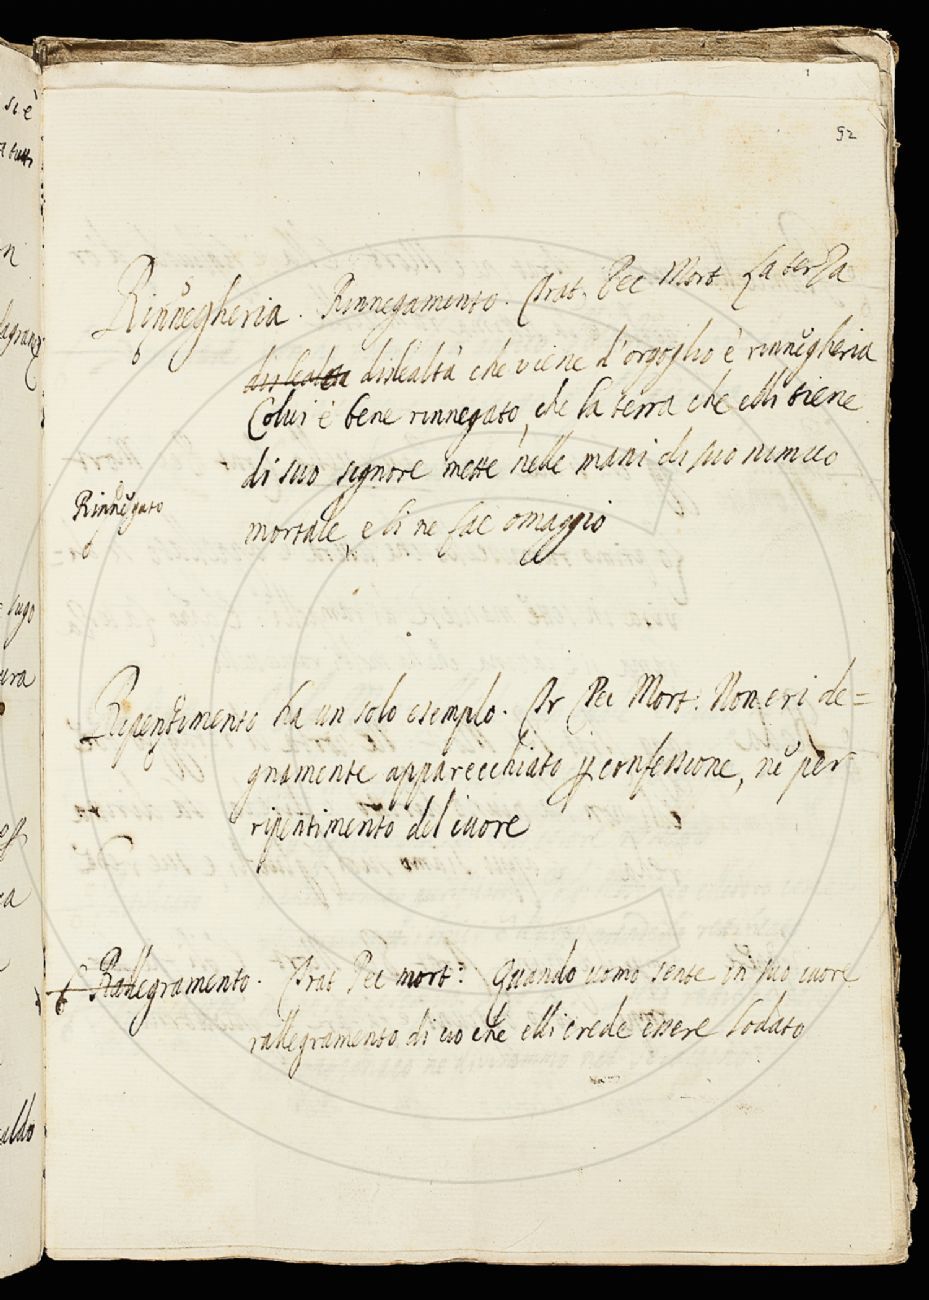 92
Rinnegheria. Rinnegamento. Trat. Pec Mort. La terza
dislealta dislealtà che viene d'orgoglio è rinnegheria
Colui è bene rinnegato, che la terra che elli tiene
di suo signore mette nelle mani di suo nimico
Rinnegato
mortale, e li ne fae omaggio
Ripentimento ha un solo esemplo. Tr Pec Mort: Non eri de=
gnamente apparecchiato p confessione, nè per
ripentimento del cuore
Rallegramento. Trat Pec mort: Quando uomo sente in suo cuore
rallegramento di ciò che elli crede essere lodato
si è
tutti
sugo
aldo